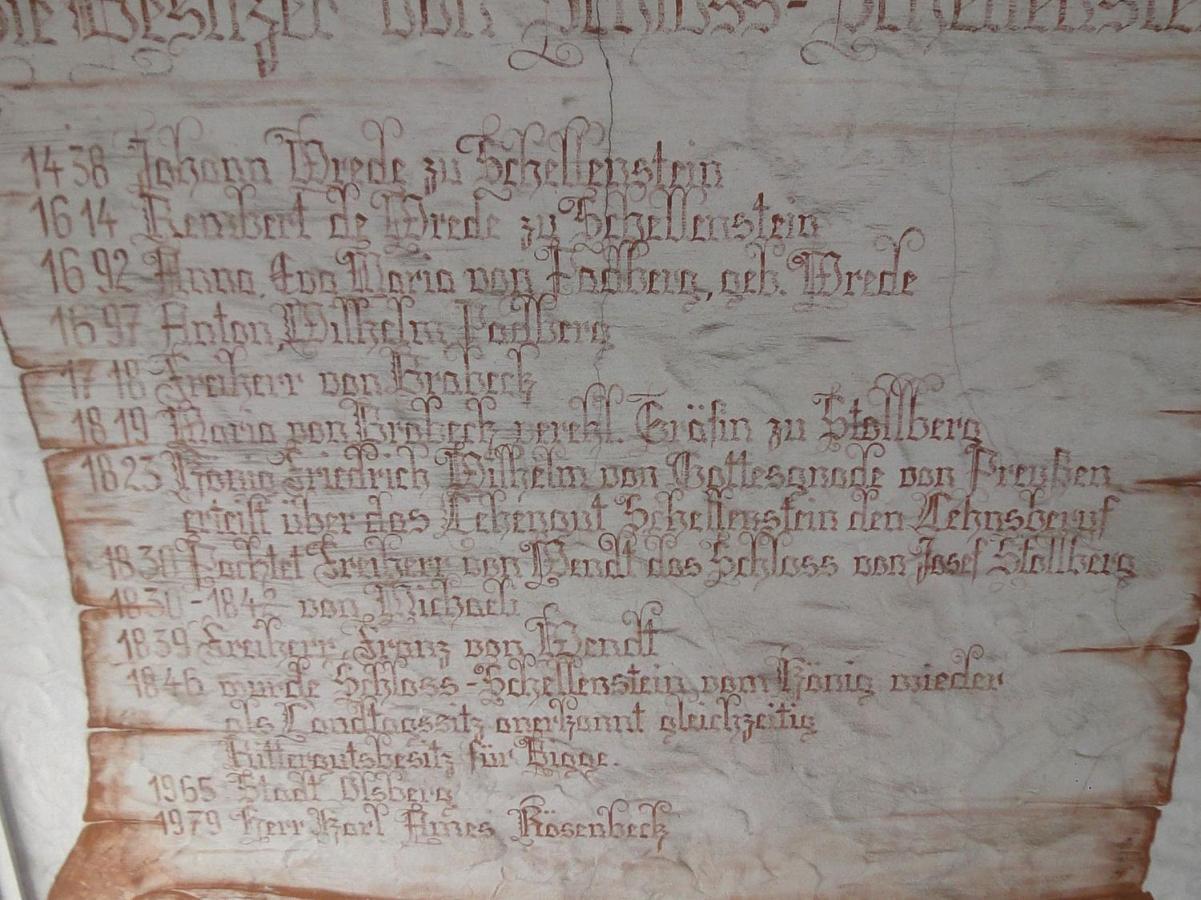 die Besitzer von Schloss-Schellenste
1438 Johann Wrede zu Schellenstein
1614 Rembert de Wrede zu Schellenstein
1692 Anna, Eva Maria von Padberg, geb. Wrede
1697 Anton, Wilhelm Padberg
1718 Freiherr von Brabeck
1819 Maria von Brabeck verehl. Gräfin zu Stollberg
1823 König Friedrich Wilhelm von Gottesgnade von Preußen
erteilt über das Lehengut Schellenstein den
1830 Pachtet Freiherr von Wendt das Schloss von Josef Stollberg
1830-1842 von Michaeli
1839 Freiherr Franz von Wendt
1846 wurde Schloss-Schellenstein vom König wieder
als Landtagssitz anerkannt gleichzeitig
Rittergutsbesitz für Bigge.
1965 Stadt Olsberg
1979 Herr Karl Rösenbeck